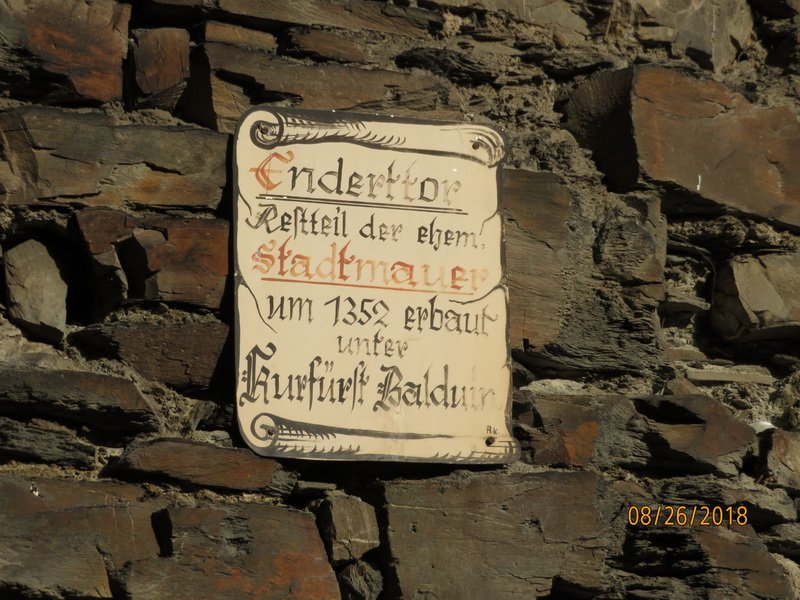 Enderttor
Restteil der ehem.
Stadtmauer
um 1352 erbaut
unter
Kurfürst Balduin
R.K.
08/26/2018